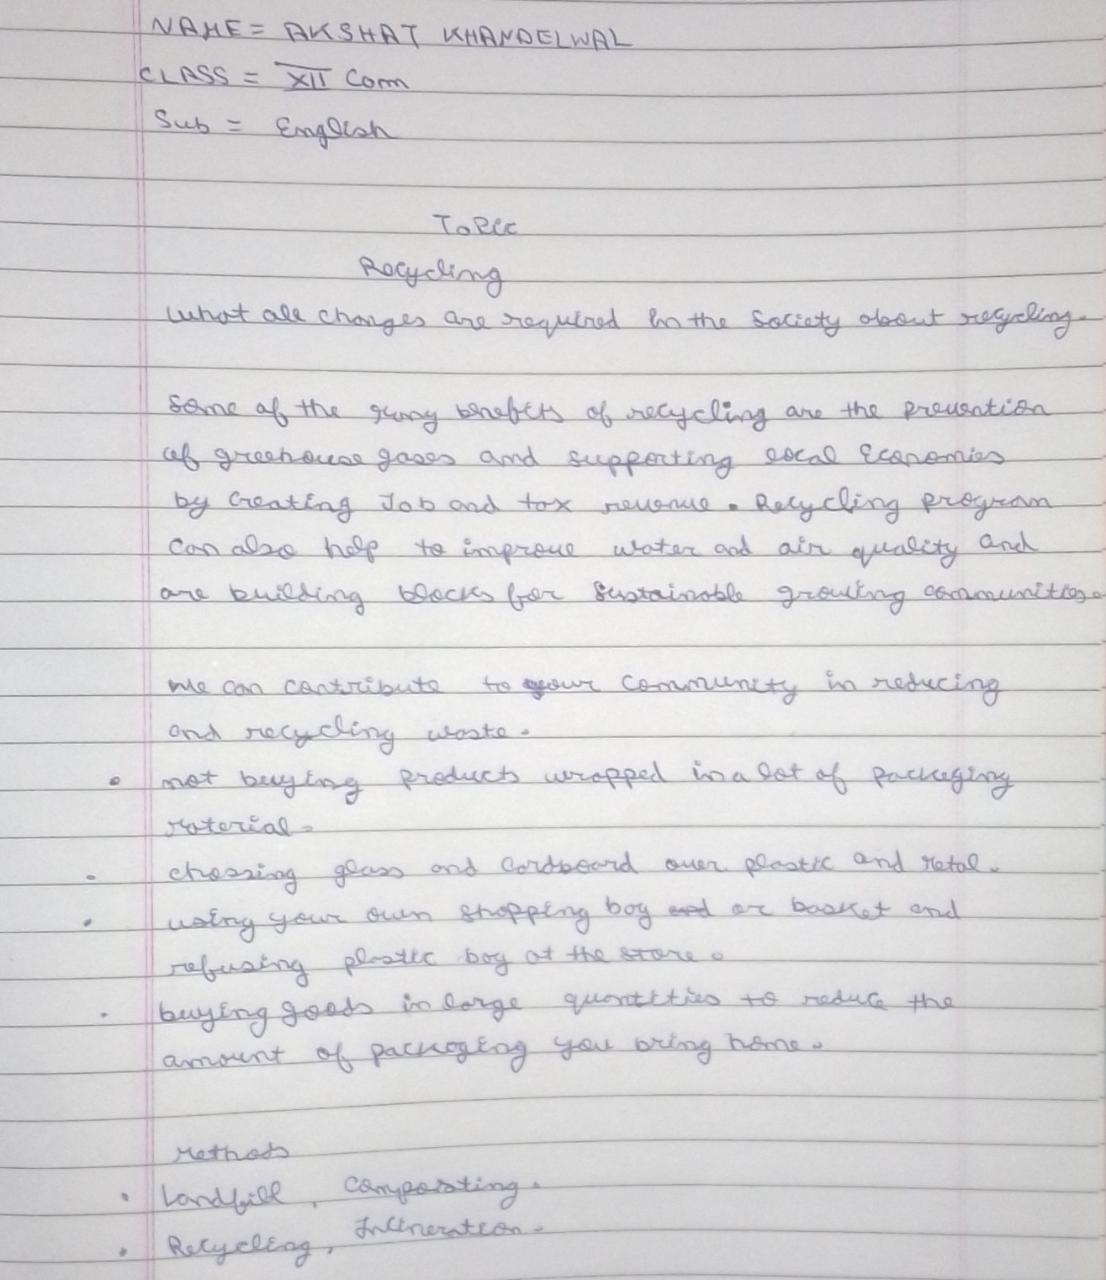 NAME = AKSHAT KHANDELWAL
CLASS = XII Com
Sub = English
Topic
Recycling
What all changes are required in the society about recycling.
Some of the many benefits of recycling are the prevention
of greenhouse gases and supporting local Economies
by Creating Job and tax revenue. Recycling program
can also help to improve water and air quality and
are building blocks for Sustainable growing communities.
We can contribute to your community in reducing
and recycling waste.
• not buying products wrapped in a lot of packaging
material.
• choosing glass and Cardboard over plastic and metal.
• using your own shopping bag or basket and
refusing plastic bag at the store.
• buying goods in large quantities to reduce the
amount of packaging you bring home.
Methods
• Landfill, Composting.
• Recycling, Incineration.